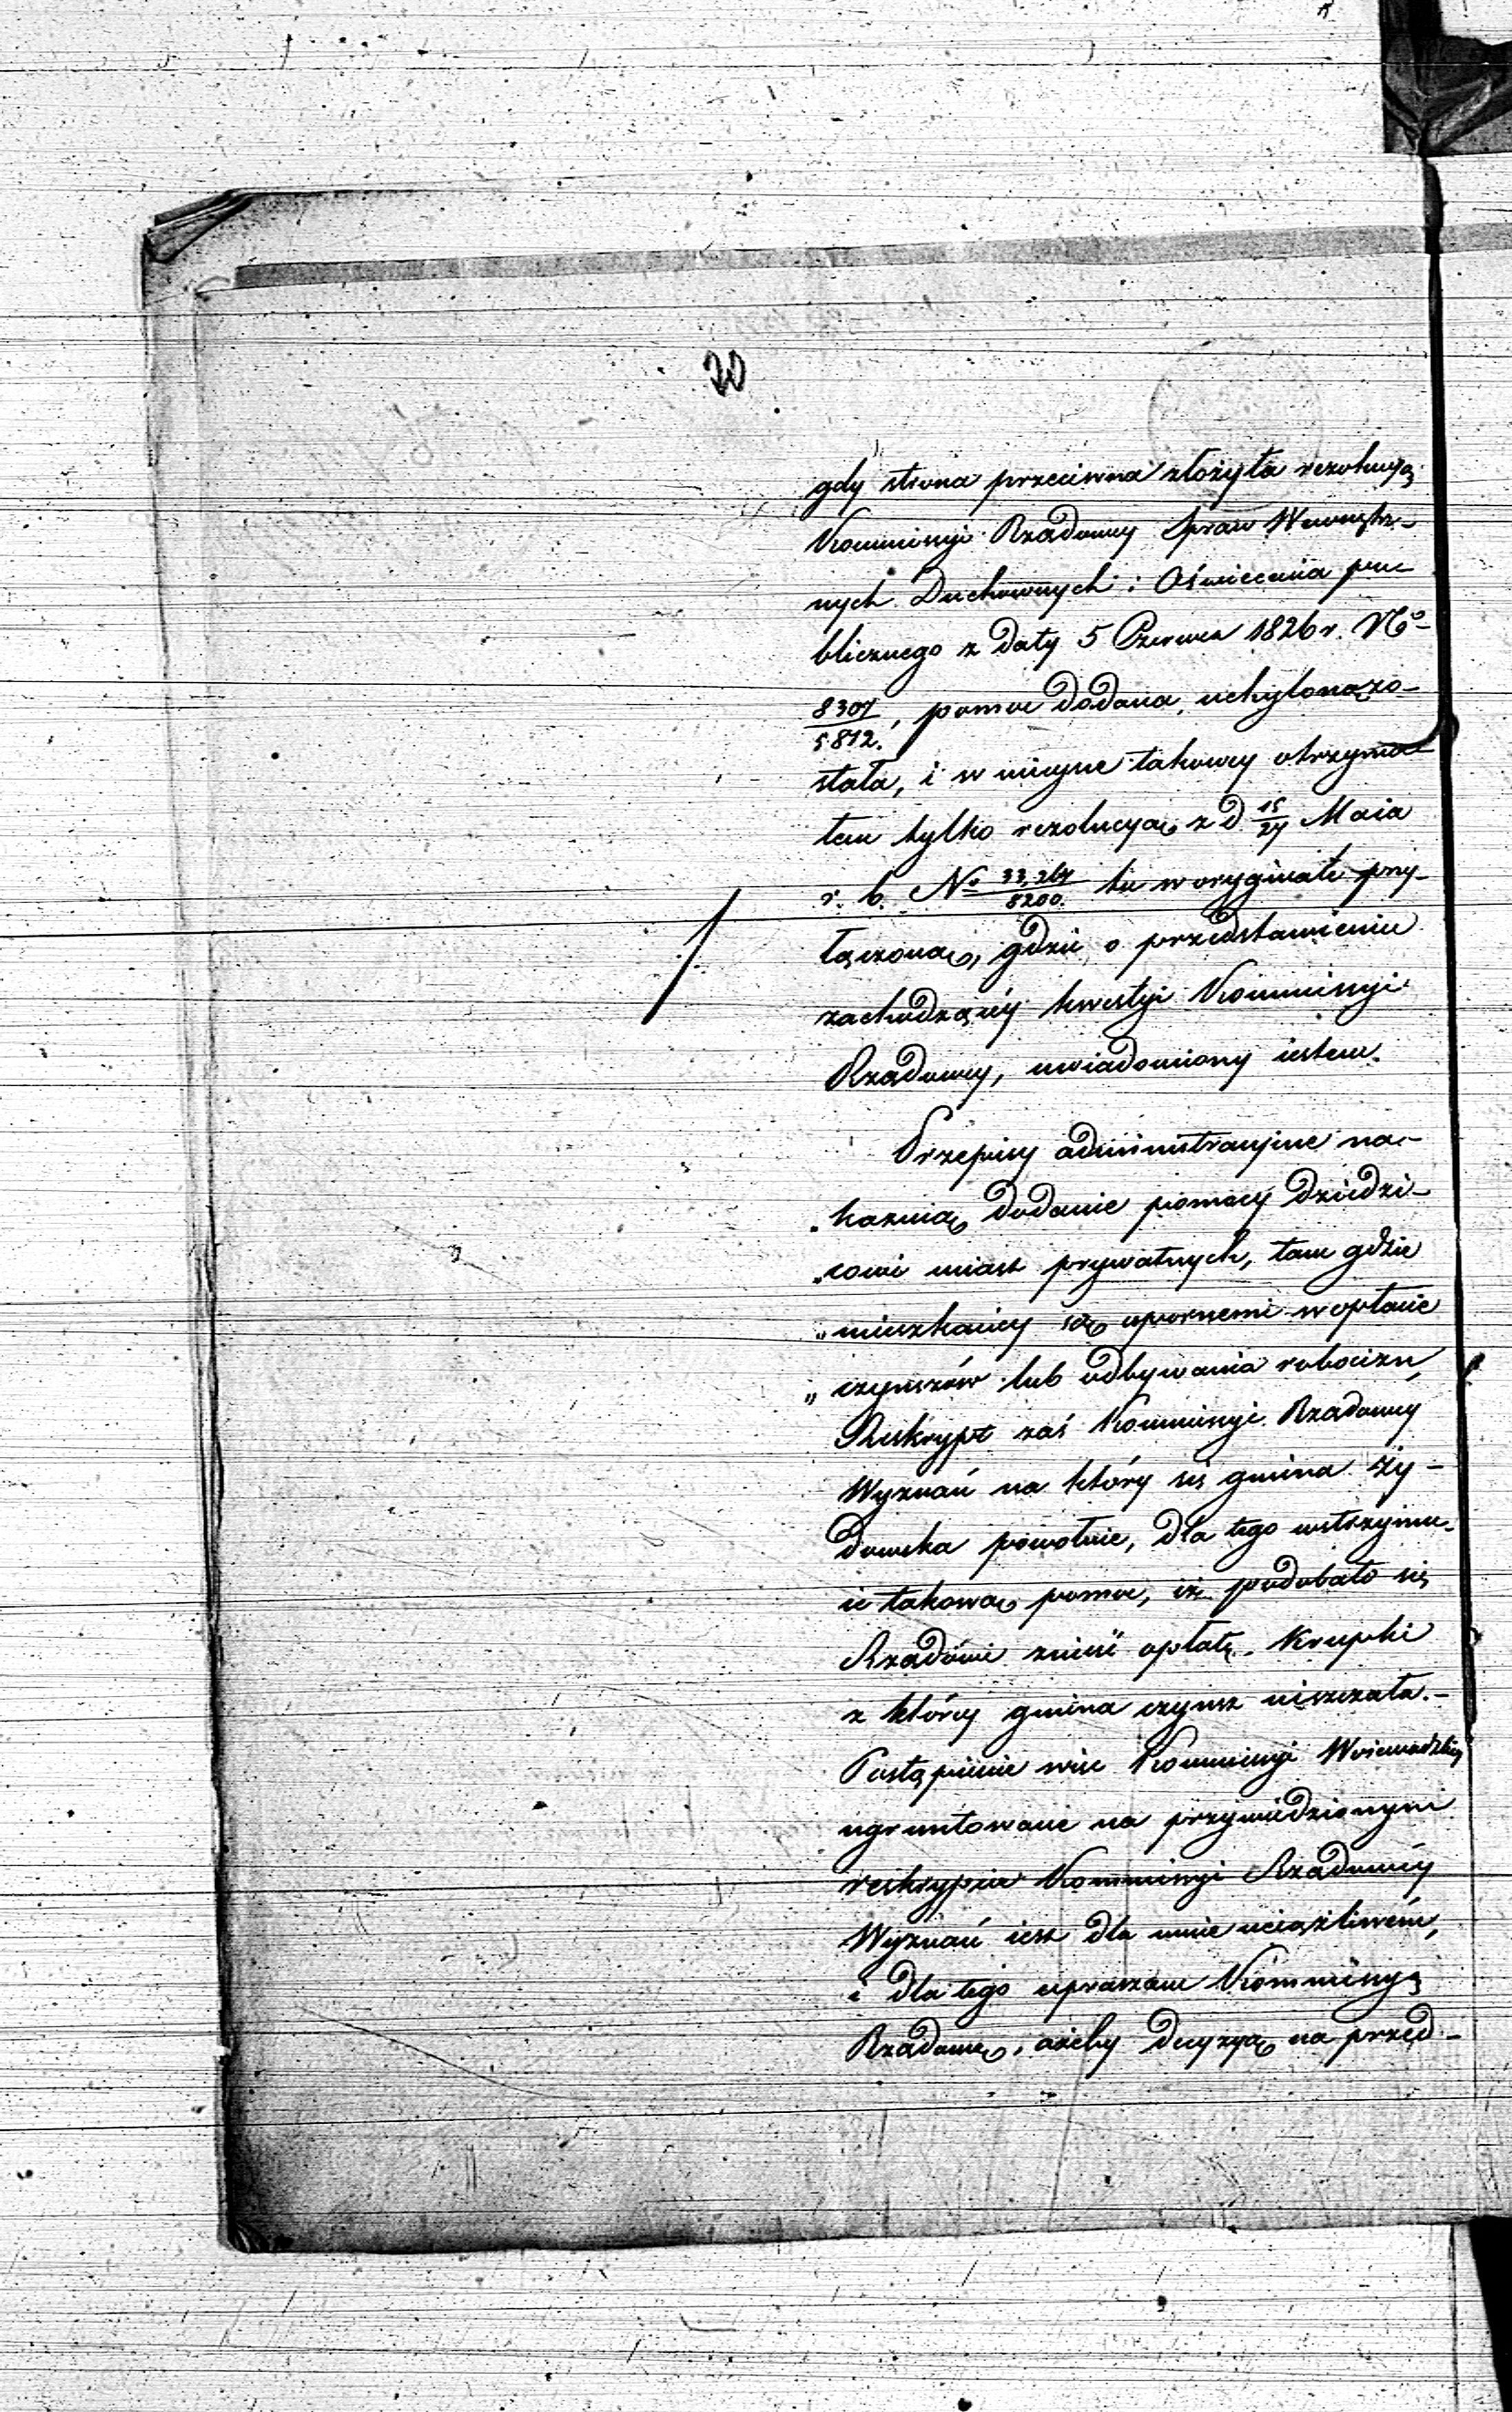 20
gdy strona przeciwna złożyła rezolucyą
Kommissyi Rządowey Spraw Wewnętrz-
nych Duchownych i Oświecenia pu-
blicznego z daty 5 Czerwca 1826 r. No
8307/5812., pomoc dodana, uchylona zo-
stała, i w mieysce takowey otrzyma-
łem tylko rezolucyą z d. 15/27 Maia
r. b. No 33,264/8200. tu w oryginale przy-
łączoną, gdzie o przedstawieniu
zachodzącéy kwestyi Kommissyi
Rządowey, uwiadomiony iestem.
Przepisy administracyine na-
„kazuią dodanie pomocy dziedzi-
„cowi miast prywatnych, tam gdzie
„mieszkańcy są opornemi w opłacie
„czynszów lub odbywania robocizn,
Reskrypt zaś Kommissyi Rządowey
Wyznań na który się gmina Ży-
dowska powołuie, dla tego wstrzymu-
ie takową pomoc, iż podobało się
Rządowi znieść opłatę Krupki
z którey gmina czynsz uiszczała.-
Postąpienie więc Kommissyi Woiewodzkiey
ugruntowane na przywiedzionym
reskrypcie Kommissyi Rządowéy
Wyznań iest dla mnie uciążliwém,
i dla tego upraszam Kommissyą
Rządową, ażeby decyzyą na przed-